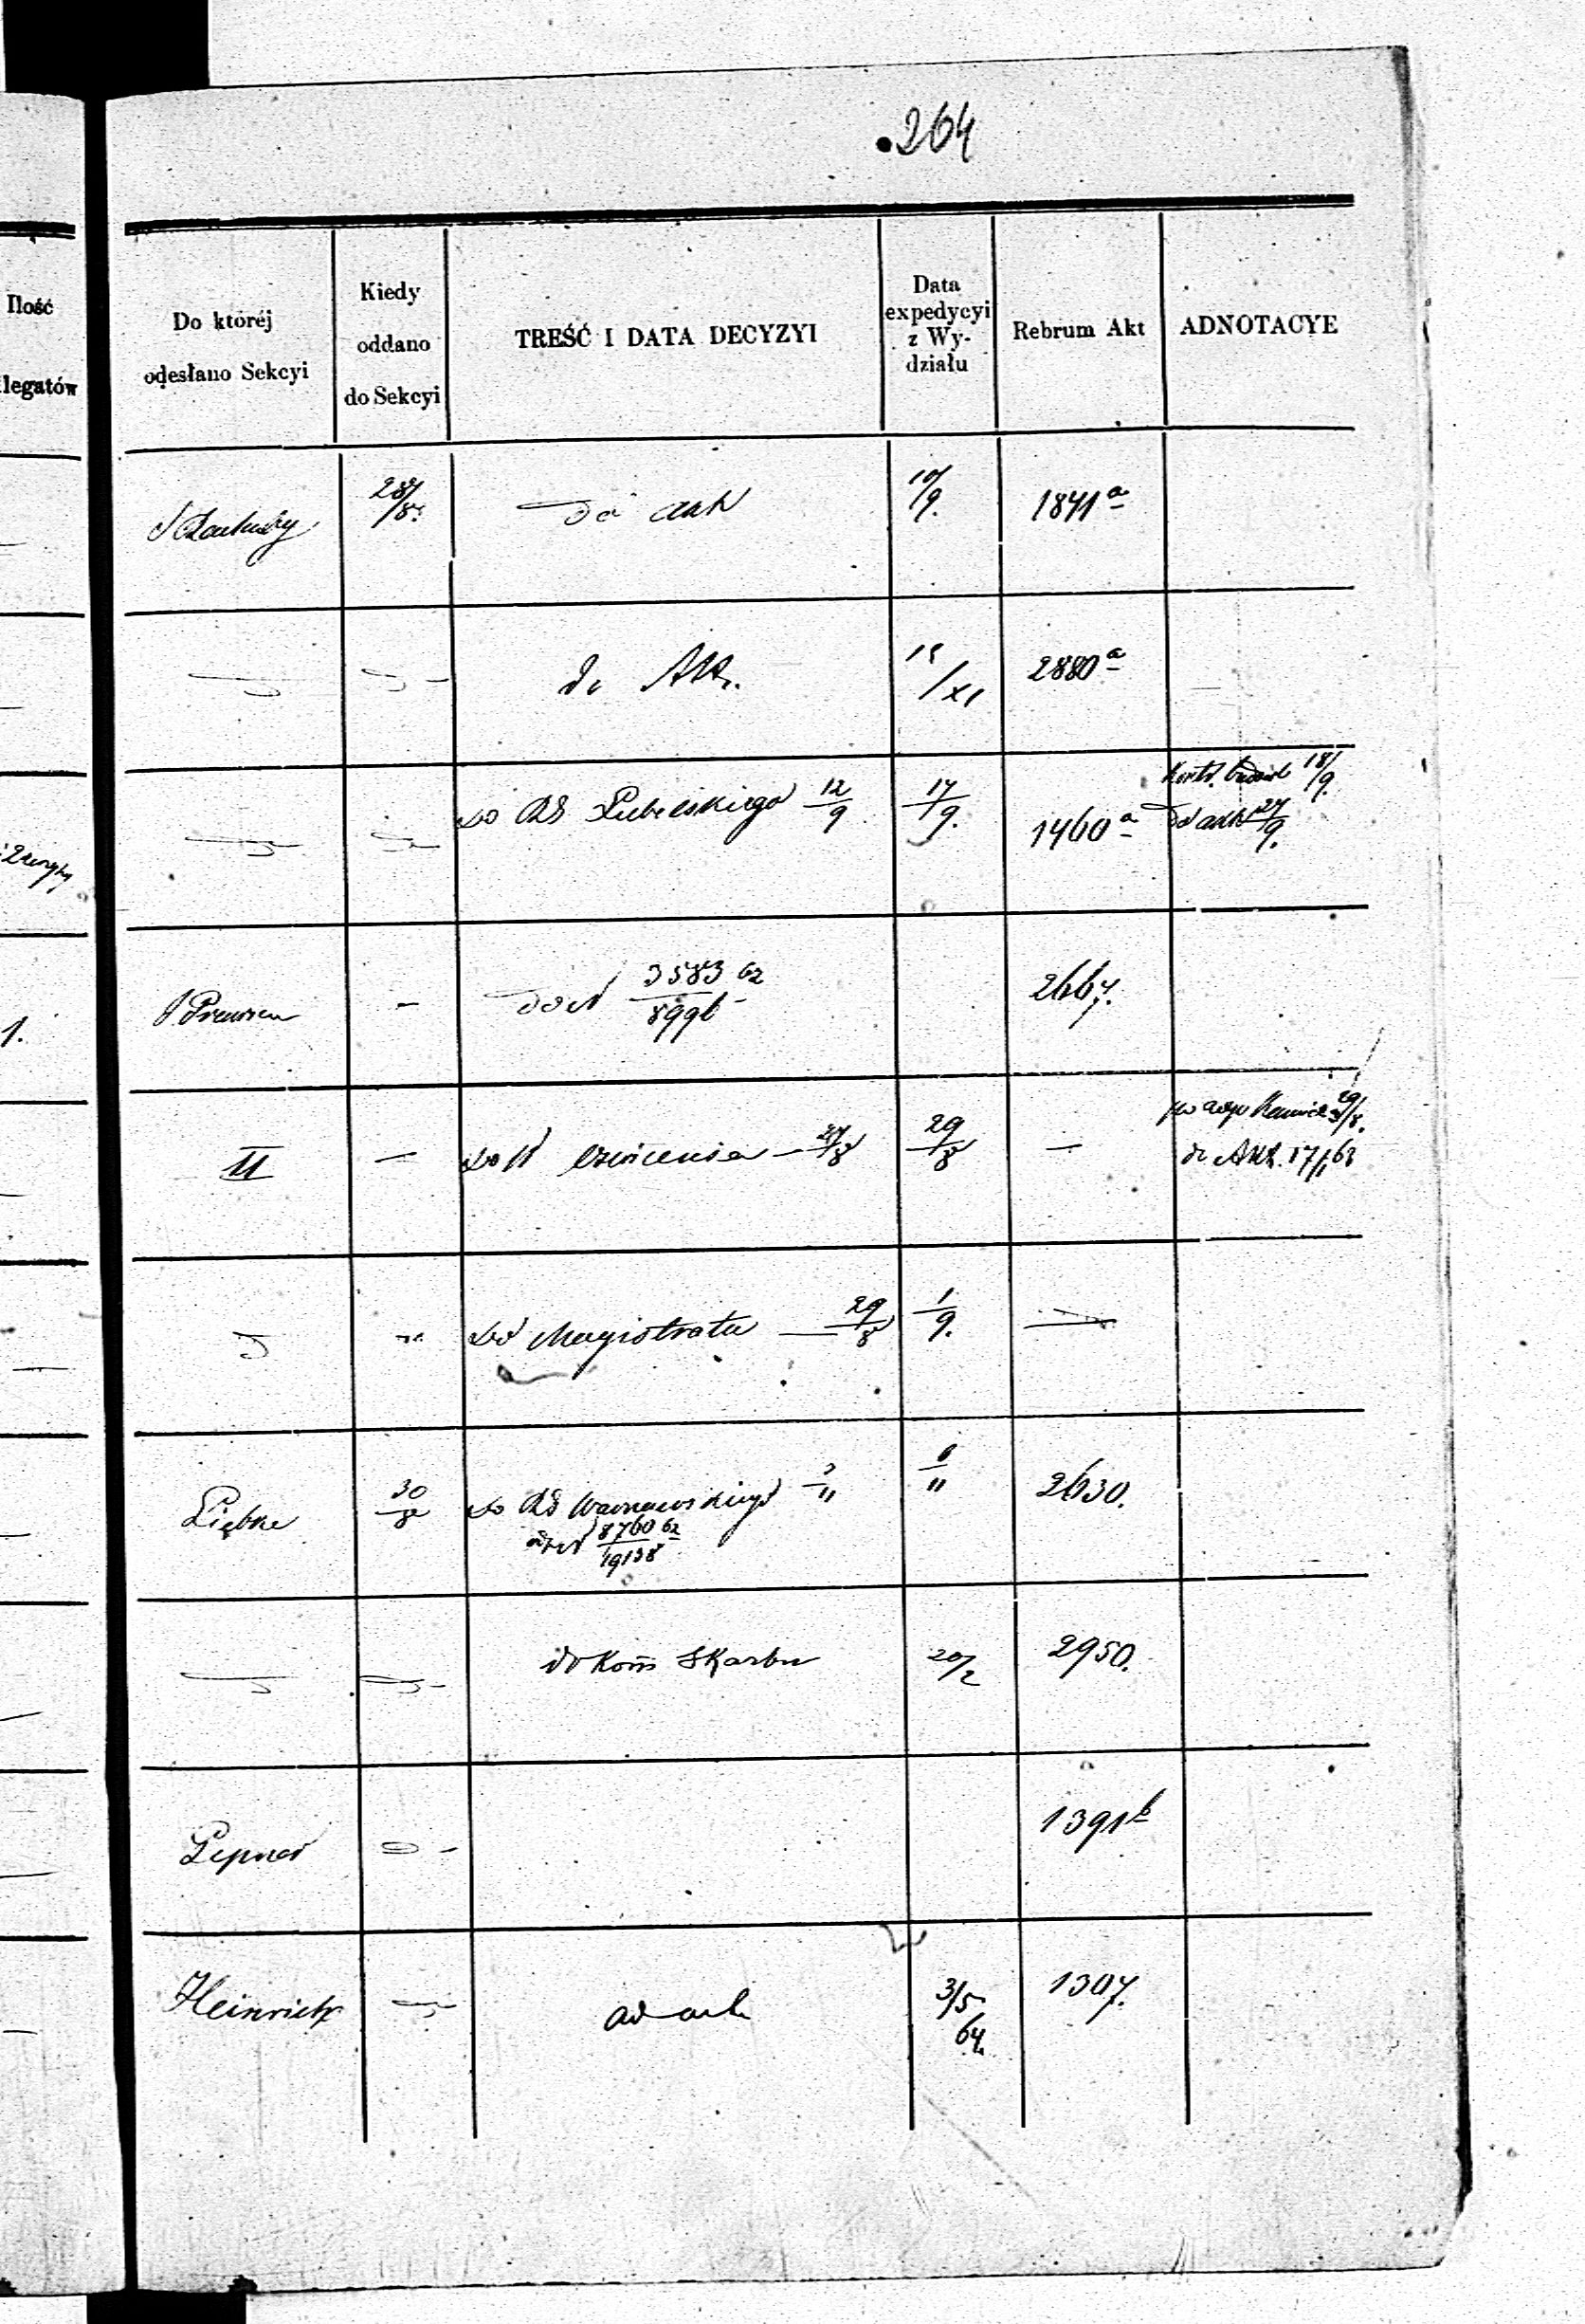 264
Ilość
legatów
Do któréj
odesłano Sekcyi
Kiedy
oddano
do Sekcyi
TREŚĆ I DATA DECYZYI
Data
expedycyi
z Wy-
działu
Rebrum Akt
ADNOTACYE
28/8
do akt
10/9.
1841 a
do Akt.
15/XI
2880 a
do RG Lubelskiego 12/9
17/9.
1460 a
18/9.
do akt 27/9.
1.
do N 3583/8996 62
2667.
II
—
do N 27/8
29/8
—
29/8.
do Akt. 17/1 63
do Magistratu — 29/8
1/9.
Liebke
30/8
do RG Warszawskiego 3/11
do N 8760/19138 62
6/11
2630.
do Kom Skarbu
20/2
2950.
Lepner
1391 b
Heinrich
ad acta
3/5 64.
1307.